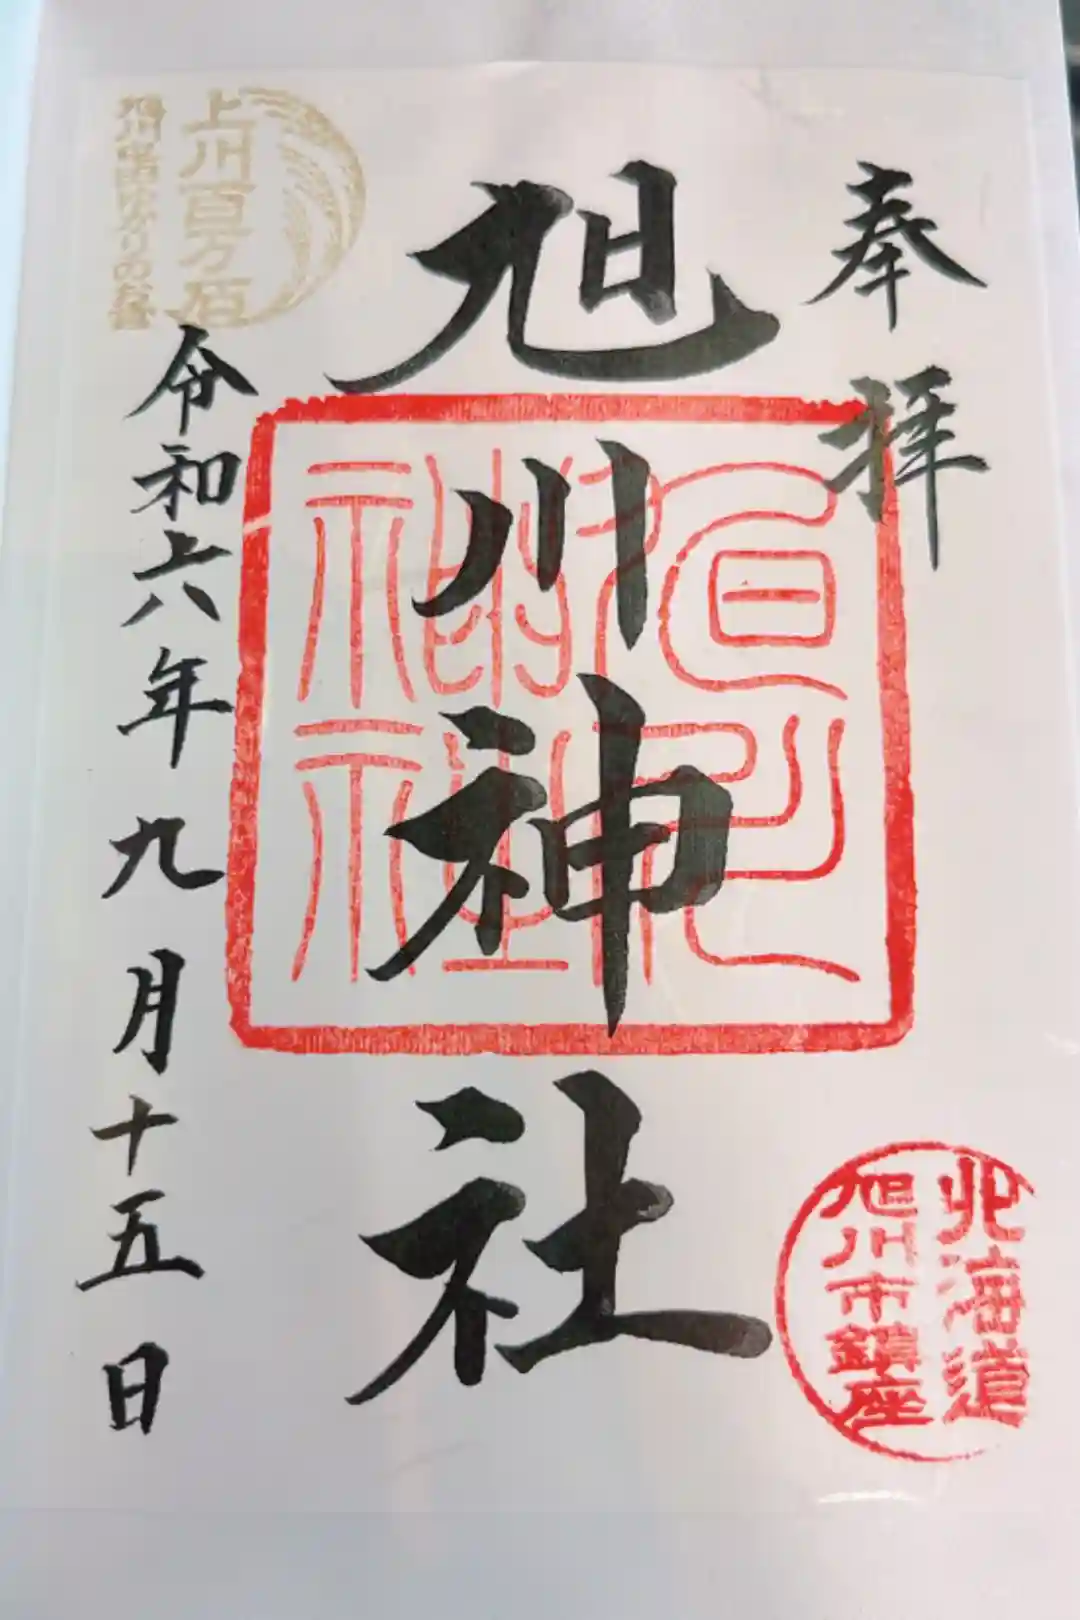 奉拝
北海道
旭川市鎮座
旭川神社
旭川神社
上川百万石
令和六年九月十五日